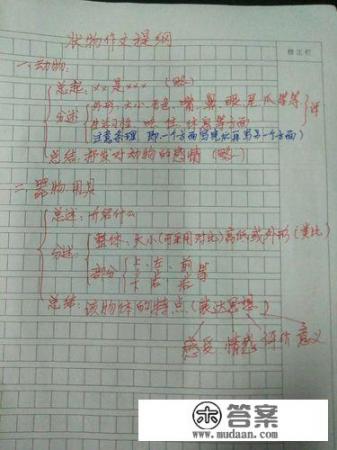 状物作文提纲
一、动物:
总起: xx是xxx (略)
分述: 外形、大小、毛色、嘴、鼻、眼、尾、爪等等 详
生活习性: 吃、住、休息等方面
注意条理, 即一个方面写完后再写另一个方面)
总结: 抒发对动物的感情 (略)
二、器物用具
总述: 介绍什么
分述: 整体: 大小(可采用对比)高低或外形(类比)
部分 上、左、前
下 右 后 等
总结: 该物体的特点(表达思想)
感受 情感 评价 意义
修正栏
答案
www.mudaan.com